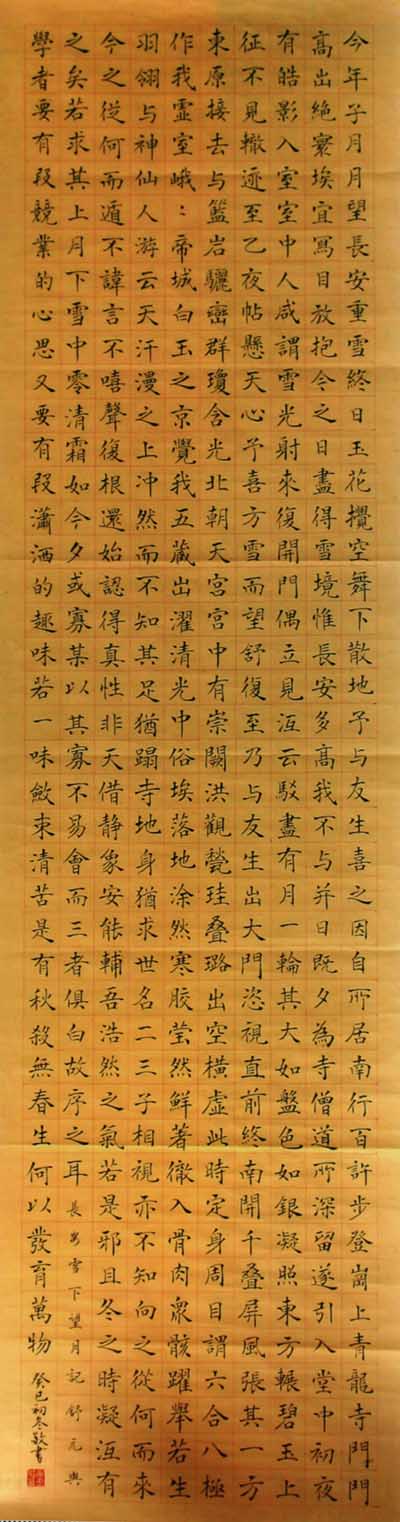 今年子月月望長安重雪終日玉花攪空舞下散地予与友生喜之因自所居南行百許步登崗上青龍寺門門
高出絶寰埃宜寫目放抱今之日盡得雪境惟長安多高我不与并日既夕為寺僧道所深留遂引入堂中初夜
有皓影入室室中人咸謂雪光射來復開門偶立見冱云駁盡有月一輪其大如盤色如銀凝照東方輾碧玉上
征不見轍迹至乙夜帖懸天心予喜方雪而望舒復至乃与友生出大門恣視直前終南開千叠屏風張其一方
東原接去与籃岩驪巒群瓊含光北朝天宮宮中有崇闕洪觀甃珪叠璐出空橫虛此時定身周目謂六合八極
作我霊室峨〻帝城白玉之京覺我五藏出濯清光中俗埃落地涂然寒膠莹然鮮著徹入骨肉眾骸躍舉若生
羽翎与神仙人游云天汗漫之上冲然而不知其足猶蹋寺地身猶求世名二三子相視亦不知向之從何而來
今之從何而遁不諱言不嘻聲復根還始認得真性非天借静象安能輔吾浩然之氣若是邪且冬之時凝冱有
之矣若求其上月下雪中零清霜如今夕或寡某以其寡不易會而三者俱白故序之耳 長安雪下望月記舒元輿
學者要有段競業的心思又要有段瀟洒的趣味若一味斂束清苦是有秋殺無春生何以發育萬物 癸巳初冬敬書